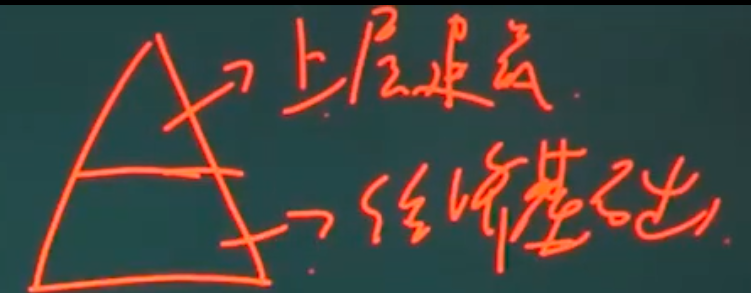 上层建筑
经济基础